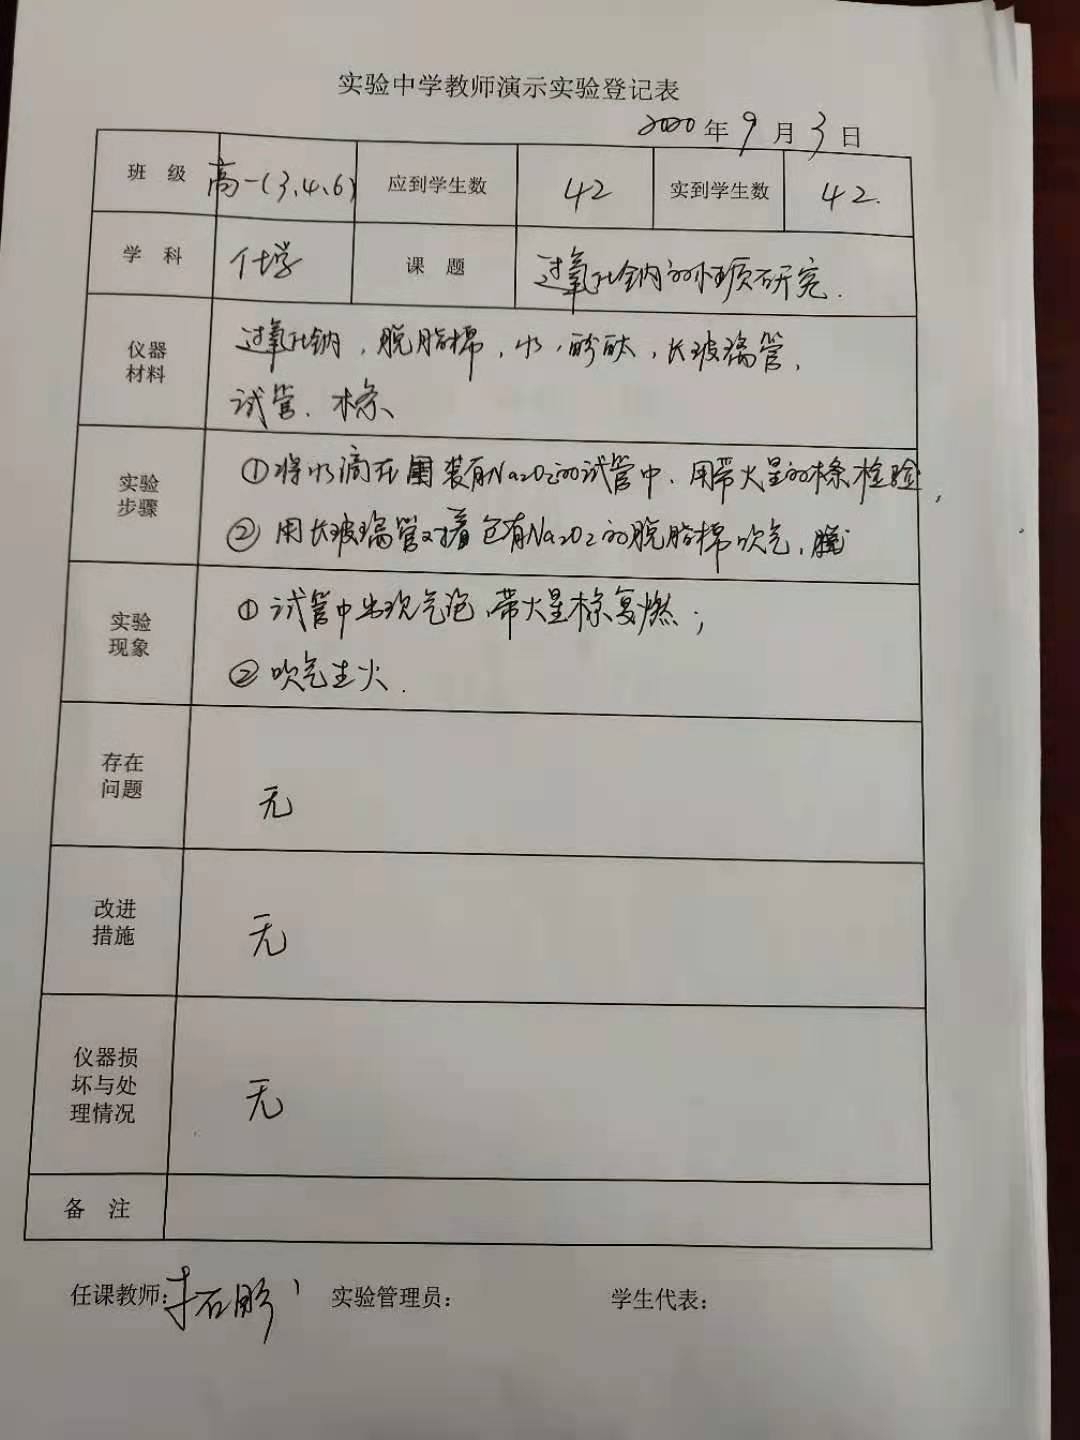 实验中学教师演示实验登记表
2020 年 9 月 3 日
班 级 高一(3、4、6) 应到学生数 42 实到学生数 42.
学 科 化学 课 题 过氧化钠的性质研究.
仪器材料 过氧化钠，脱脂棉，水，酚酞，长玻璃管，
试管、木条、
实验步骤 ①将水滴在装有Na2O2的试管中、用带火星的木条检验，
②用长玻璃管对着包有Na2O2的脱脂棉吹气，
实验现象 ①试管中出现气泡，带火星木条复燃；
②吹气生火.
存在问题 无
改进措施 无
仪器损坏与处理情况 无
备 注
任课教师： 实验管理员： 学生代表：